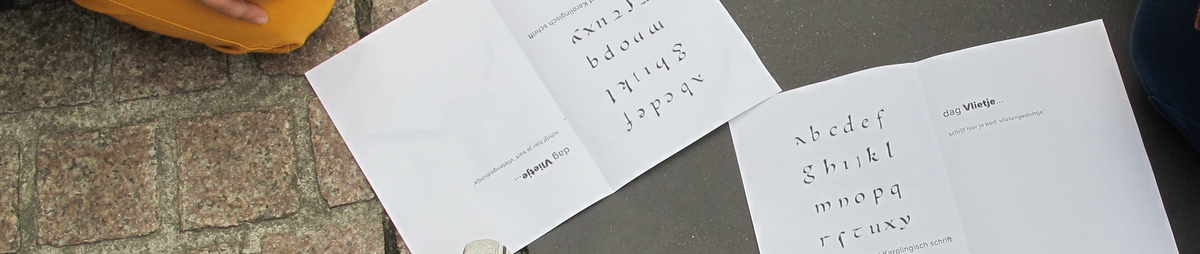 a b c d e f
g h ı ȷ k l
m n o p q
r ſ τ u x y
Karolingisch schrift
dag Vlietje...
schrijf hier je kort 'vlietangedichtje'
a b c d e f
g h ı ȷ k l
m n o p q
r ſ τ u x y
Karolingisch schrift
dag Vlietje...
schrijf hier je kort 'vlietangedichtje'